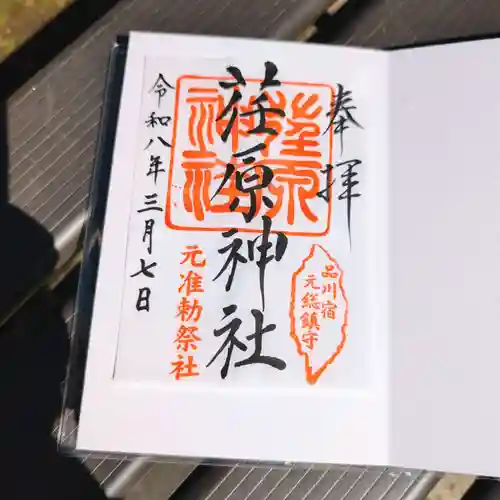 奉拝
荏原神社
品川宿
元総鎮守
元准勅祭社
令和八年三月七日
荏原神社